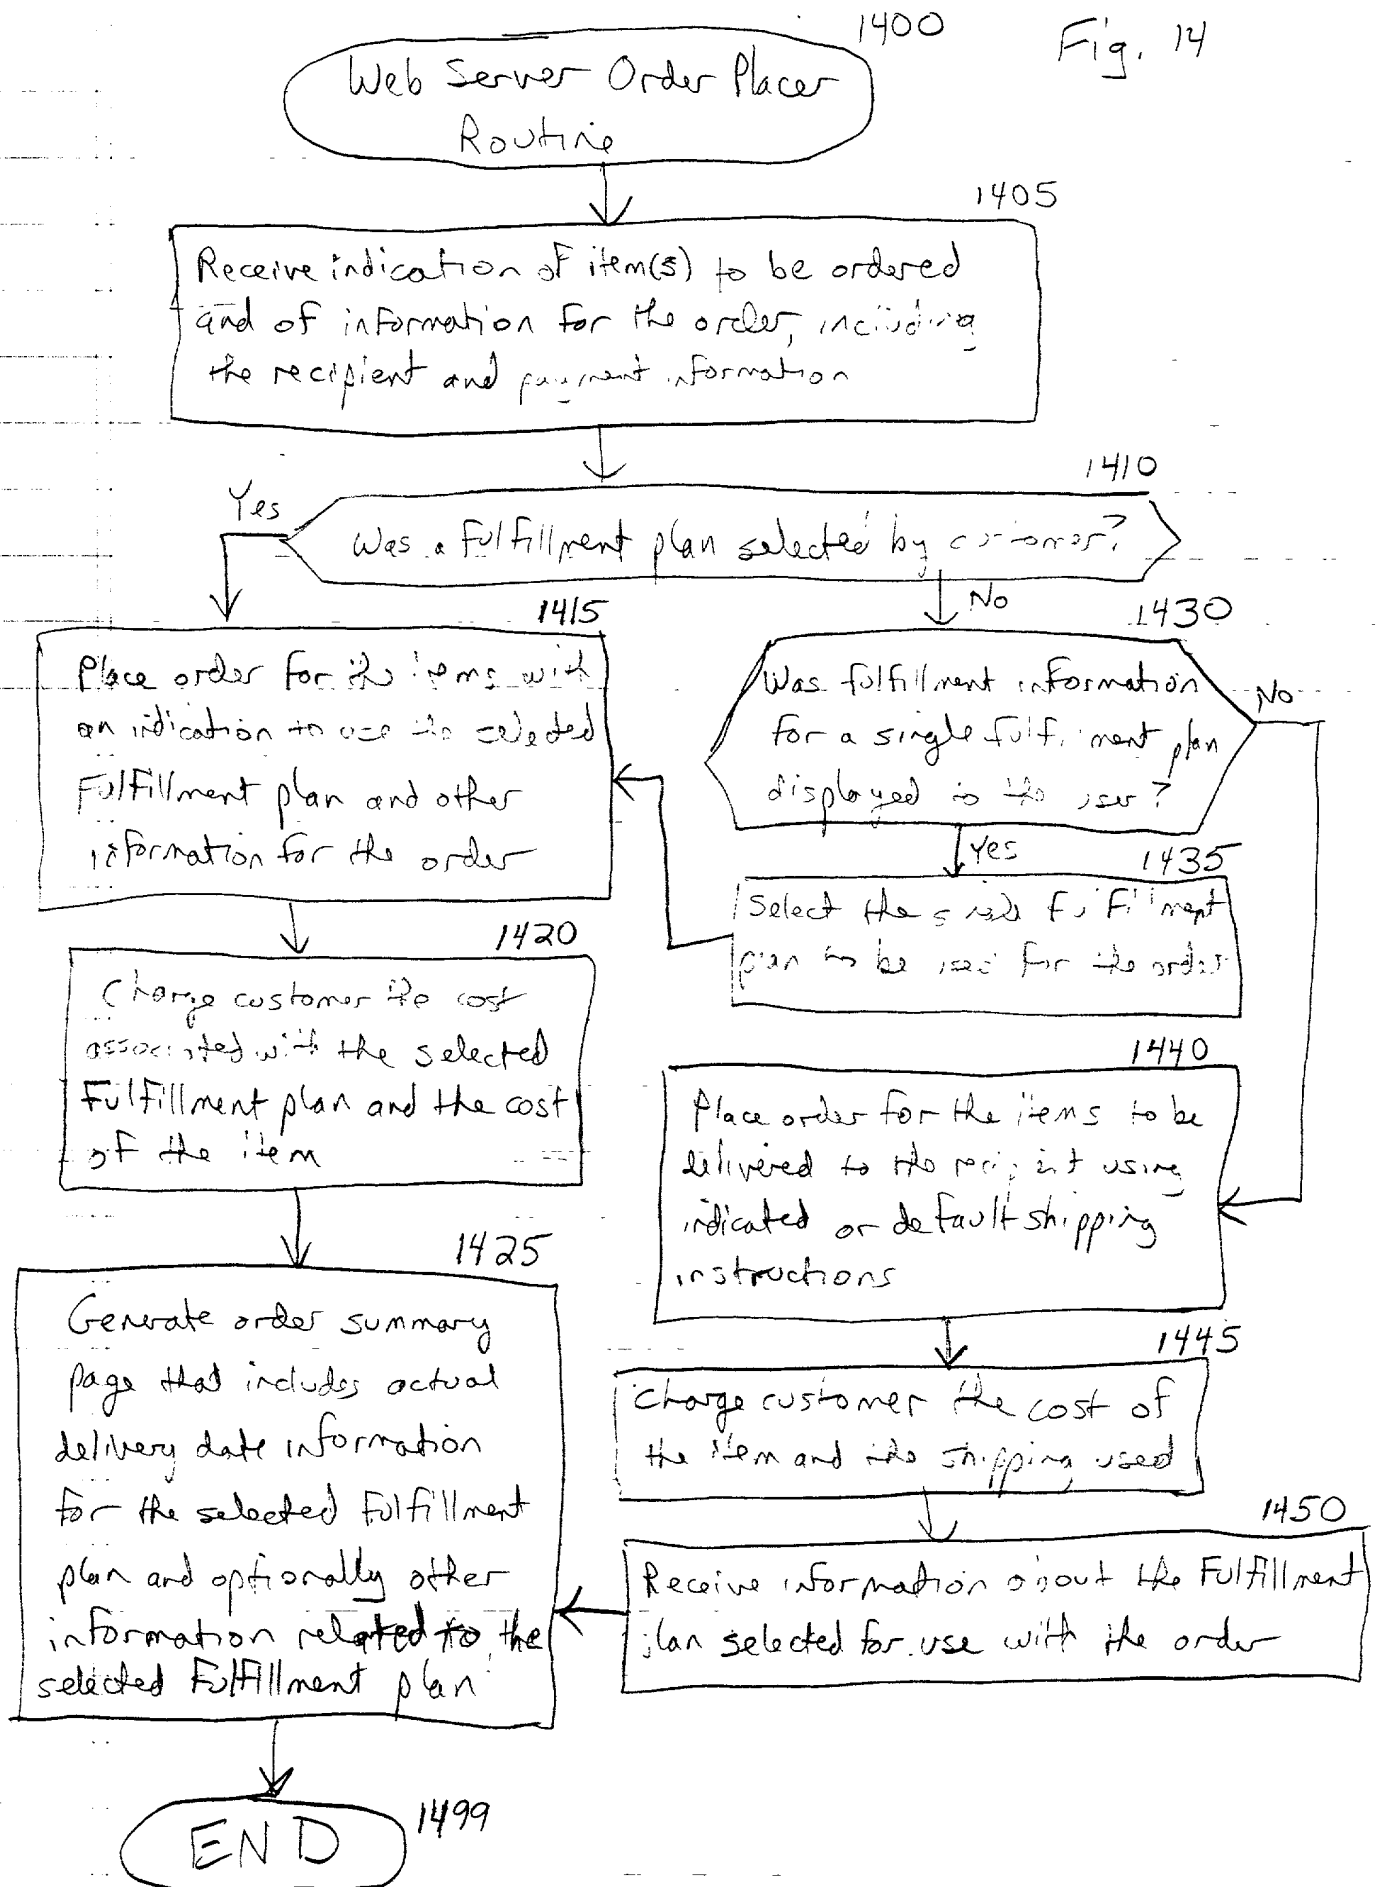 1400
Fig. 14
Web Server Order Placer
Routine
1405
Receive indication of item(s) to be ordered
and of information for the order, including
the recipient and payment information
1410
Yes
Was a fulfillment plan selected by customer?
No
1415
Place order for the items with
an indication to use the selected
Fulfillment plan and other
information for the order
1430
Was fulfillment information
for a single fulfillment plan
displayed to the user?
No
Yes
1435
Select the single fulfillment
plan to be used for the order
1420
Charge customer the cost
associated with the selected
Fulfillment plan and the cost
of the item
1440
Place order for the items to be
delivered to the recipient using
indicated or default shipping
instructions
1425
Generate order summary
page that includes actual
delivery date information
for the selected Fulfillment
plan and optionally other
information related to the
selected Fulfillment plan
1445
Charge customer the cost of
the item and the shipping used
1450
Receive information about the Fulfillment
plan selected for use with the order
END
1499